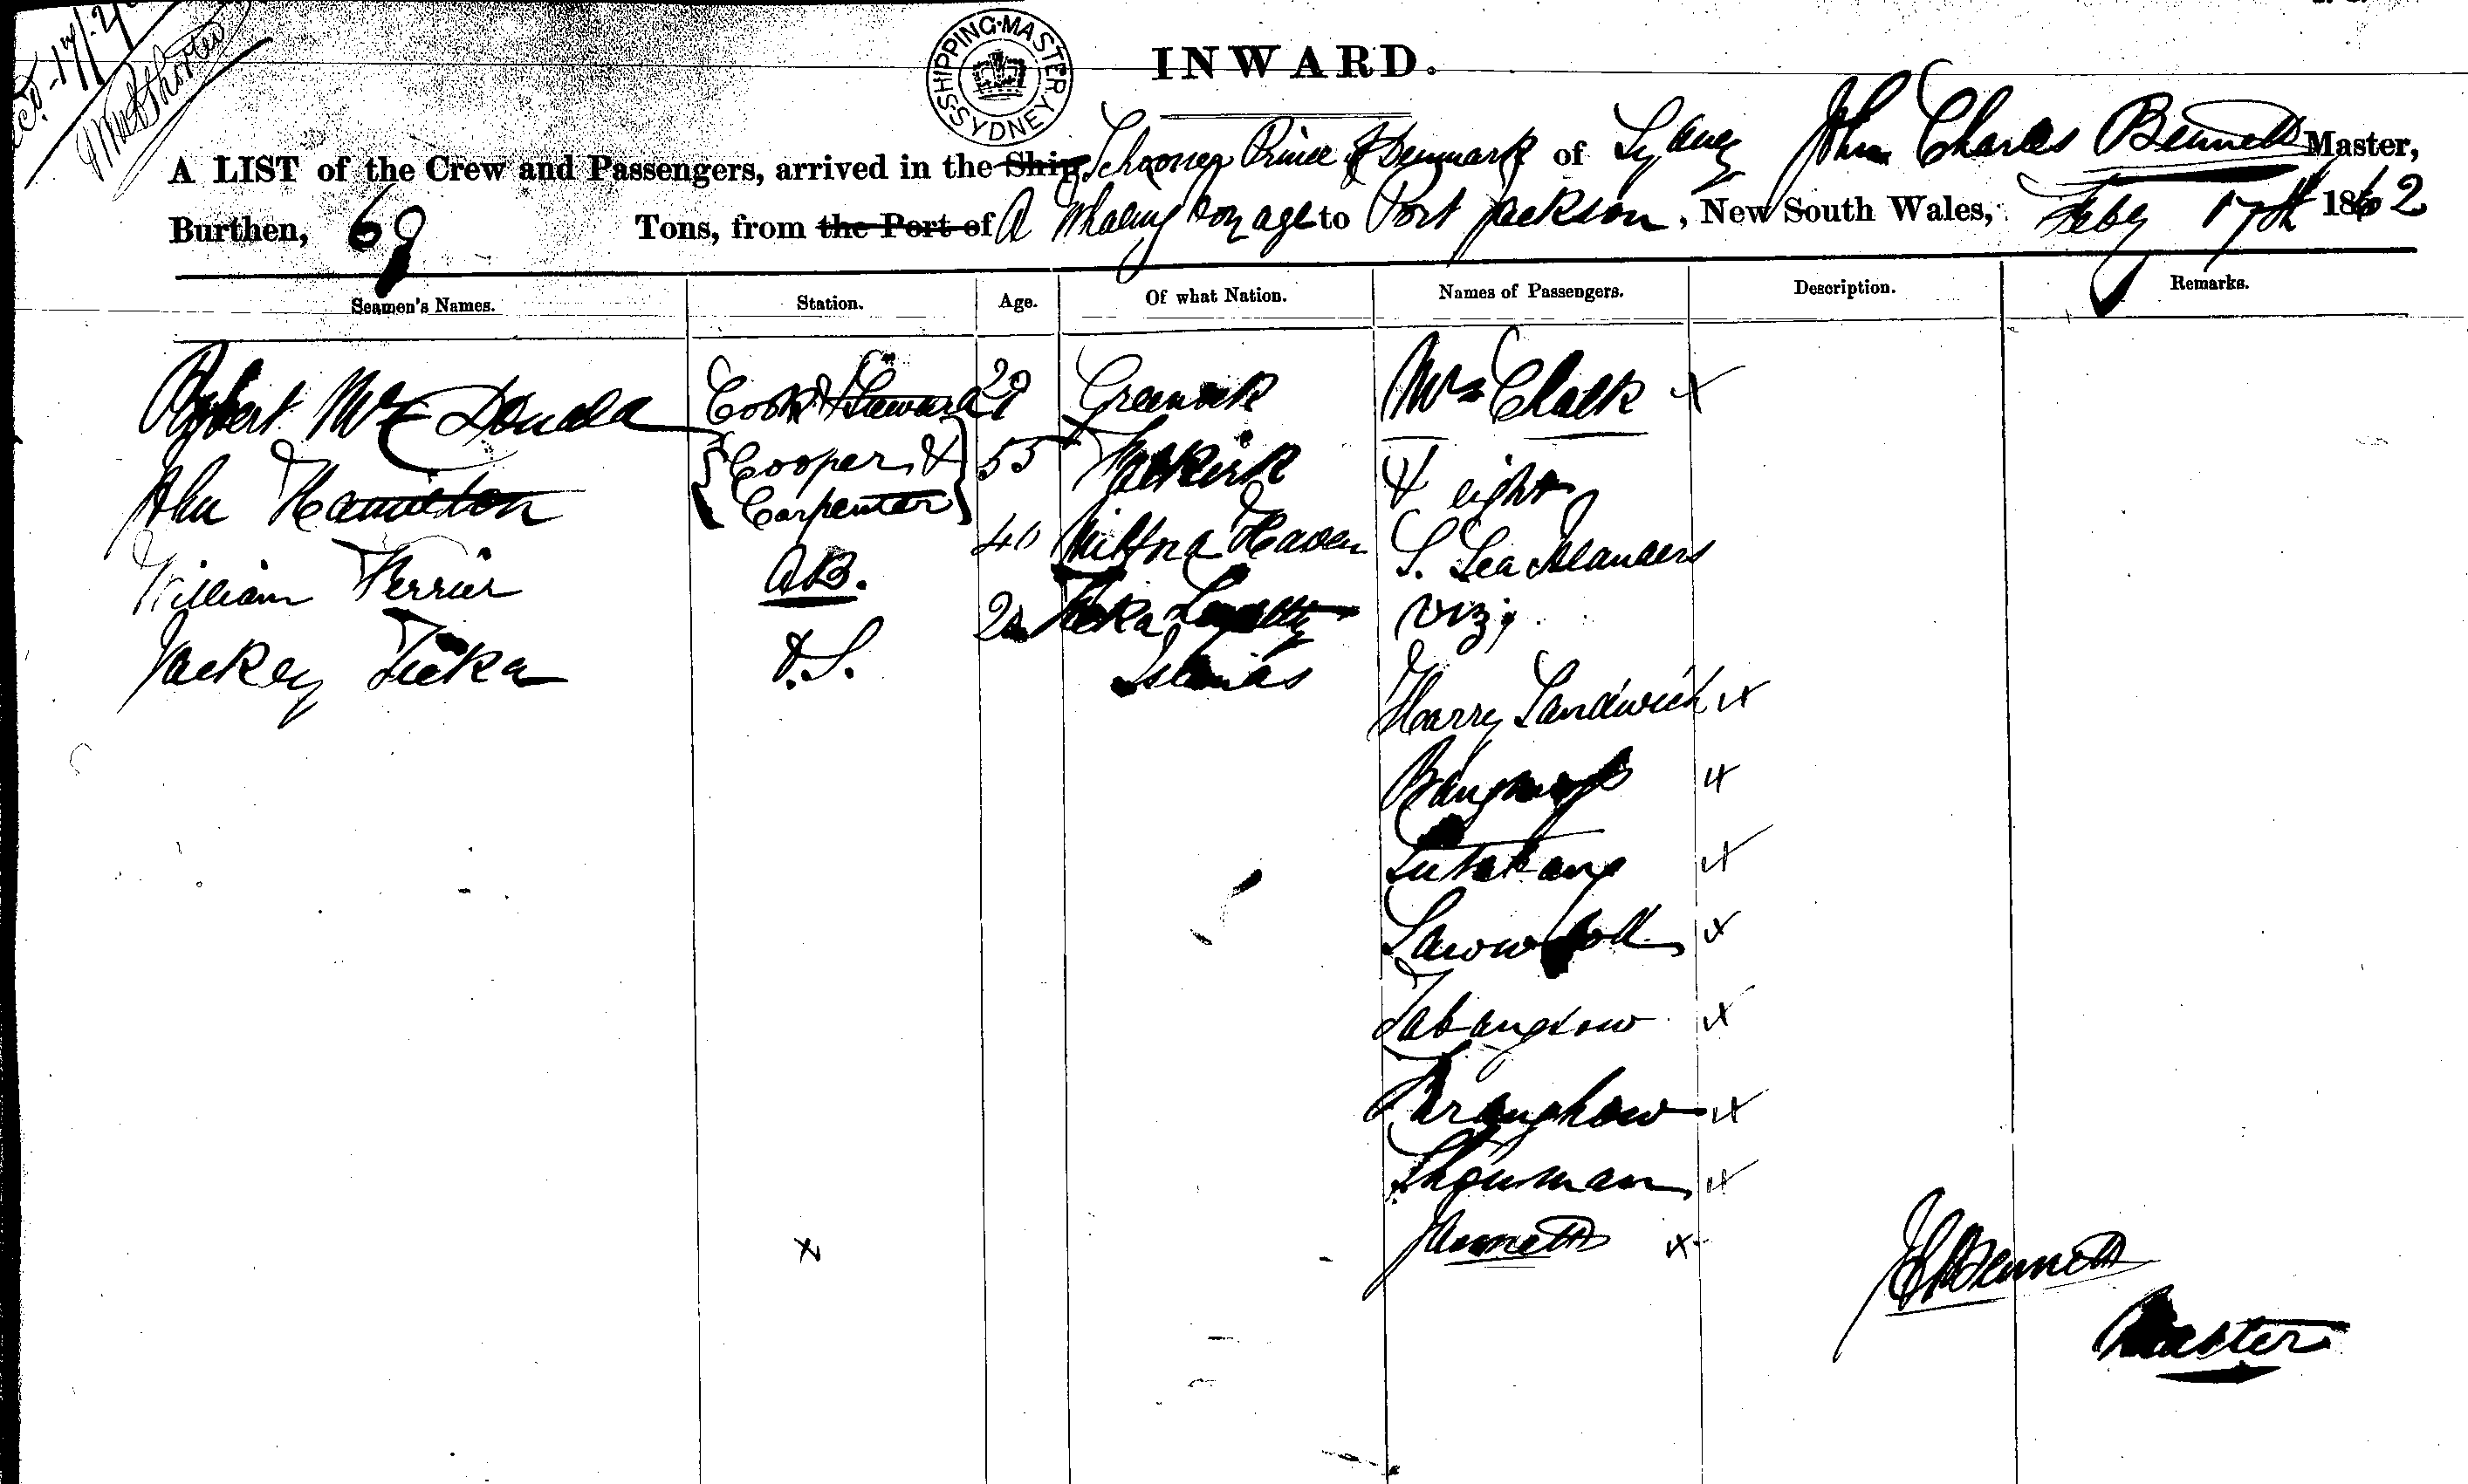 SHIPPING·MASTER
·SYDNEY·
INWARD.
A LIST of the Crew and Passengers, arrived in the Ship Schooner Prince of Denmark of Sydney John Charles Bennett Master,
Burthen, 69 Tons, from the Port of A Whaling Voyage to Port Jackson, New South Wales, Feby 17th 1862
Seamen's Names. Station. Age. Of what Nation. Names of Passengers. Description. Remarks.
Robert McDonald Cook & Steward 29 Greenock Mrs Chalk x
John Hamilton Cooper & Carpenter 55 Falkirk & eight
William Ferrier AB. 40 Milford Haven S. Sea Islanders
Jackey Lieka O.S. Loyalty viz;
Islands
Harry Sandwich x
x
x
x
x
x
Showman x
Jannett x
x
JCBennett
Master